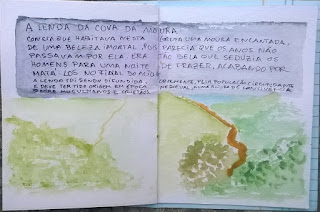 A LENDA DA COVA DA MOURA:
CONCTA QUE HABITAVA NESTA GRUTA UMA MOURA ENCANTADA,
DE UMA BELEZA IMORTAL POIS PARECIA QUE OS ANOS NÃO
PASSAVAM POR ELA. ERA TÃO BELA QUE SEDUZIA OS
HOMENS PARA UMA NOITE DE PRAZER, ACABANDO POR
MATA-LOS NO FINAL DO ACTO
A LENDA FOI SENDO DIFUNDIDA PELA POPULAÇÃO
E DEVE TER TIDO ORIGEM EM ÉPOCA MEDIEVAL, NUMA ALTURA DE
ENTRE MUÇULMANOS E CRISTÃOS